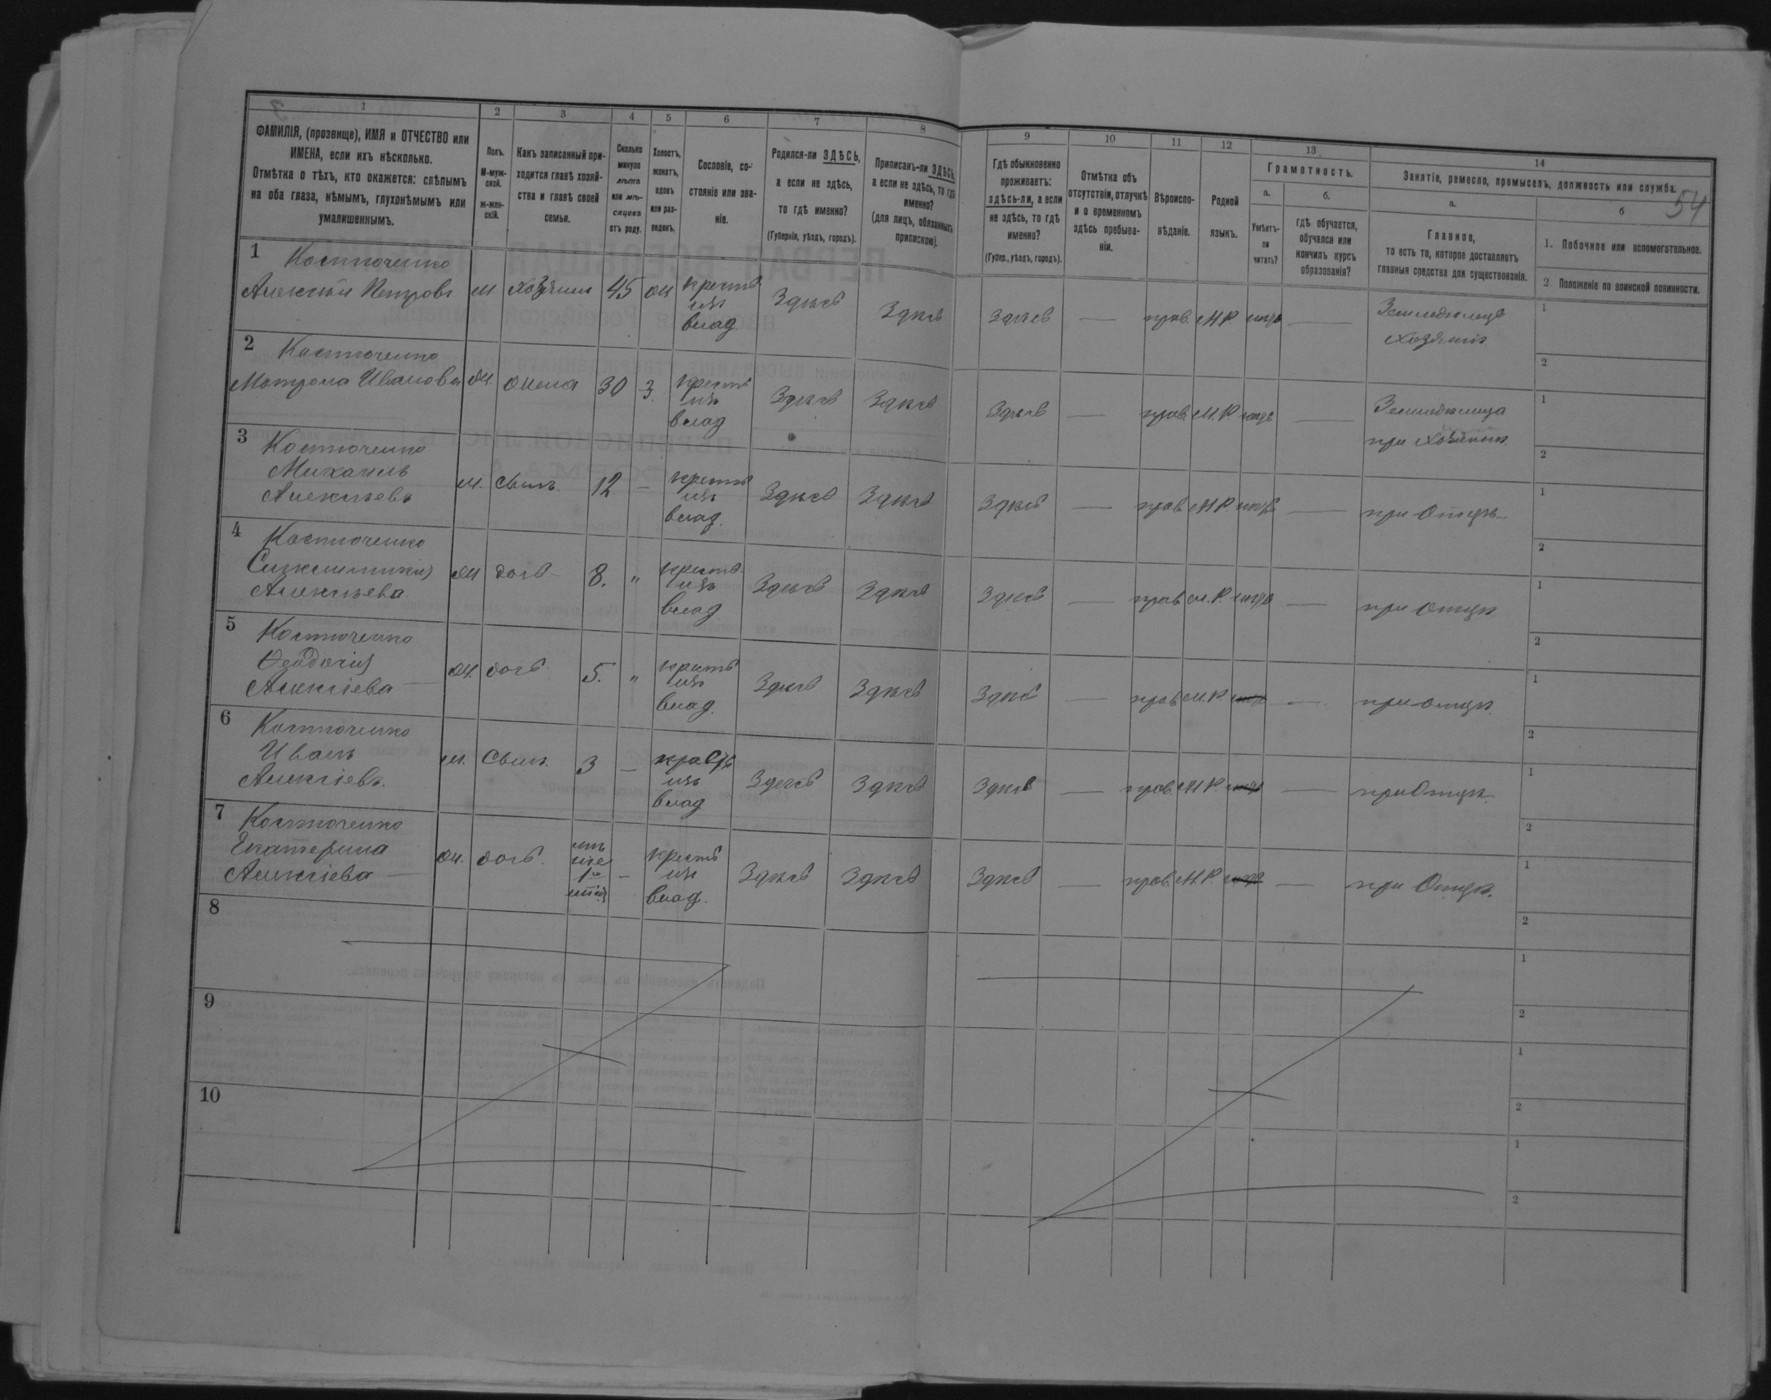 1 2 3 4 5 6 7 8 9 10 11 12 13 14
54
ФАМИЛІЯ, (прозвище), ИМЯ и ОТЧЕСТВО или
ИМЕНА, если ихъ нѣсколько.
Отмѣтка о тѣхъ, кто окажется: слѣпымъ
на оба глаза, нѣмымъ, глухонѣмымъ или
умалишеннымъ.
Полъ.
М-муж-
ской.
ж-жен-
скій.
Какъ записанный при-
ходится главѣ хозяй-
ства и главѣ своей
семьи.
Сколько
минуло
лѣтъ
или мѣ-
сяцевъ
отъ роду.
Холостъ,
женатъ,
вдовъ
или раз-
веденъ.
Сословіе, со-
стояніе или зва-
ніе.
Родился-ли ЗДѢСЬ,
а если не здѣсь,
то гдѣ именно?
(Губернія, уѣздъ, городъ).
Приписанъ-ли ЗДѢСЬ,
а если не здѣсь, то гдѣ
именно?
(для лицъ, обязанныхъ
припискою).
Гдѣ обыкновенно
проживаетъ:
здѣсь-ли, а если
не здѣсь, то гдѣ
именно?
(Губер., уѣздъ, городъ).
Отмѣтка объ
отсутствіи, отлучкѣ
и о временномъ
здѣсь пребыва-
ніи.
Вѣроиспо-
вѣданіе.
Родной
языкъ.
Грамотность.
а.
Умѣетъ-
ли
читать?
б.
гдѣ обучается,
обучался или
кончилъ курсъ
образованія?
Занятіе, ремесло, промыселъ, должность или служба.
а.
Главное,
то есть то, которое доставляетъ
главныя средства для существованія.
б
1. Побочное или вспомогательное.
2. Положеніе по воинской повинности.
1 Костюченко
Алексѣй Петровъ м хозяинъ 45 ж крест
изъ
влад Здѣсь Здѣсь Здѣсь — прав. М.Р. нѣтъ — Земледѣлецъ
хозяинъ 1
2
2 Костюченко
Матрона Иванова ж жена 30 з. крест
изъ
влад Здѣсь Здѣсь Здѣсь — прав. М.Р. нѣтъ — Земледѣлица
при хозяинѣ 1
2
3 Костюченко
Михаилъ
Алексѣевъ м. сынъ 12 — крест
изъ
влад. Здѣсь Здѣсь Здѣсь — прав. М.Р. нѣтъ — при Отцѣ 1
2
4 Костюченко
Алексѣева ж дочь 8. " крест
изъ
влад Здѣсь Здѣсь Здѣсь — прав. М.Р. нѣтъ — при Отцѣ 1
2
5 Костюченко
Алексѣева ж. дочь 5. " крест
изъ
влад. Здѣсь Здѣсь Здѣсь — прав. М.Р. — при Отцѣ 1
2
6 Костюченко
Иванъ
Алексѣевъ. м. сынъ 3 — крест
изъ
влад Здѣсь Здѣсь Здѣсь — прав. М.Р. — при Отцѣ. 1
2
7 Костюченко
Екатерина
Алексѣева ж. дочь — крест
изъ
влад. Здѣсь Здѣсь Здѣсь — прав. М.Р. — при Отцѣ. 1
2
8 1
2
9 1
2
10 1
2